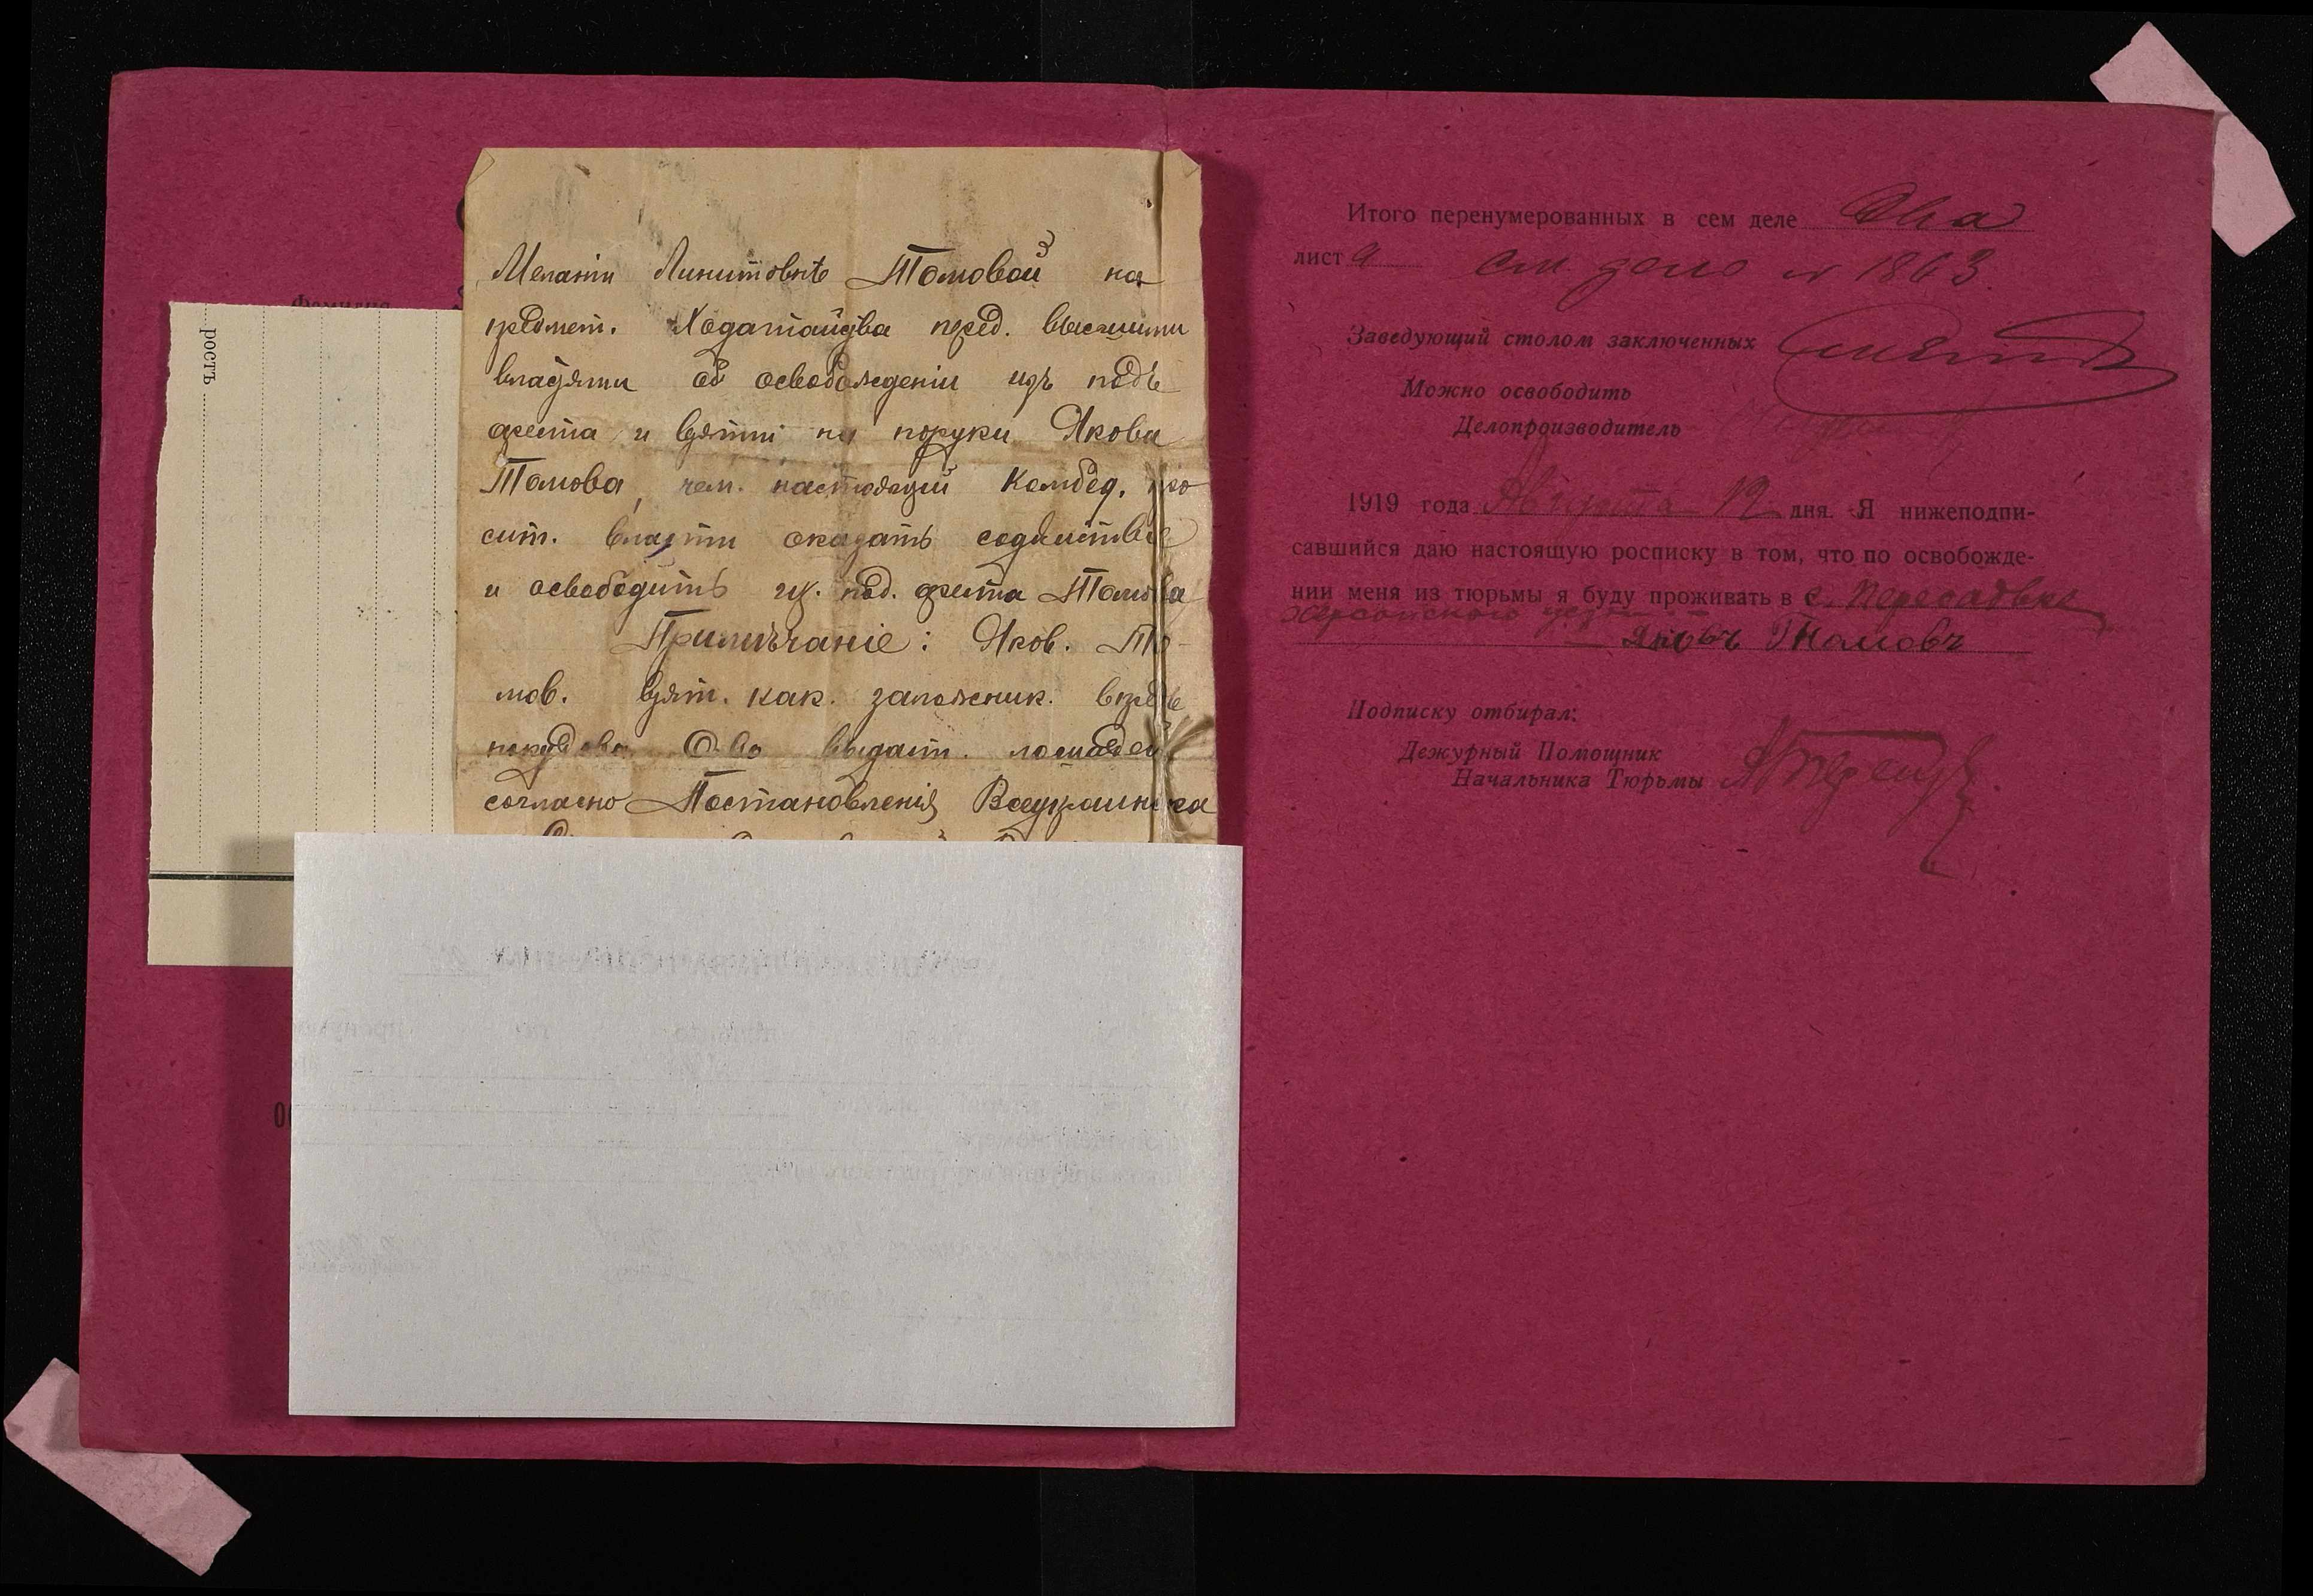 Фамилия
ростъ
Меланіи Никитовнѣ Томовой на
предмет. Ходатайства перед. высшими
властями об освобожденіи изъ подъ
ареста и взятіи на поруки Якова
Томова, чем. настоящій Комбед. про
сит. власти оказать содѣйствіе
и освободить из. под. ареста Томова
Примѣчаніе: Яков. То-
мов. взят. как. заложник. впредь
покудова О-во выдаст. лошадей
согласно Постановленія Всеукраинска
Итого перенумерованных в сем деле два
лист а см. дело № 1863
Заведующий столом заключенных
Можно освободить
Делопроизводитель
1919 года Августа 12 дня. Я нижеподпи-
савшийся даю настоящую росписку в том, что по освобожде-
нии меня из тюрьмы я буду проживать в с. Пересадвке
Херсонского уезда
Яковъ Томовъ
Подписку отбирал:
Дежурный Помощник
Начальника Тюрьмы